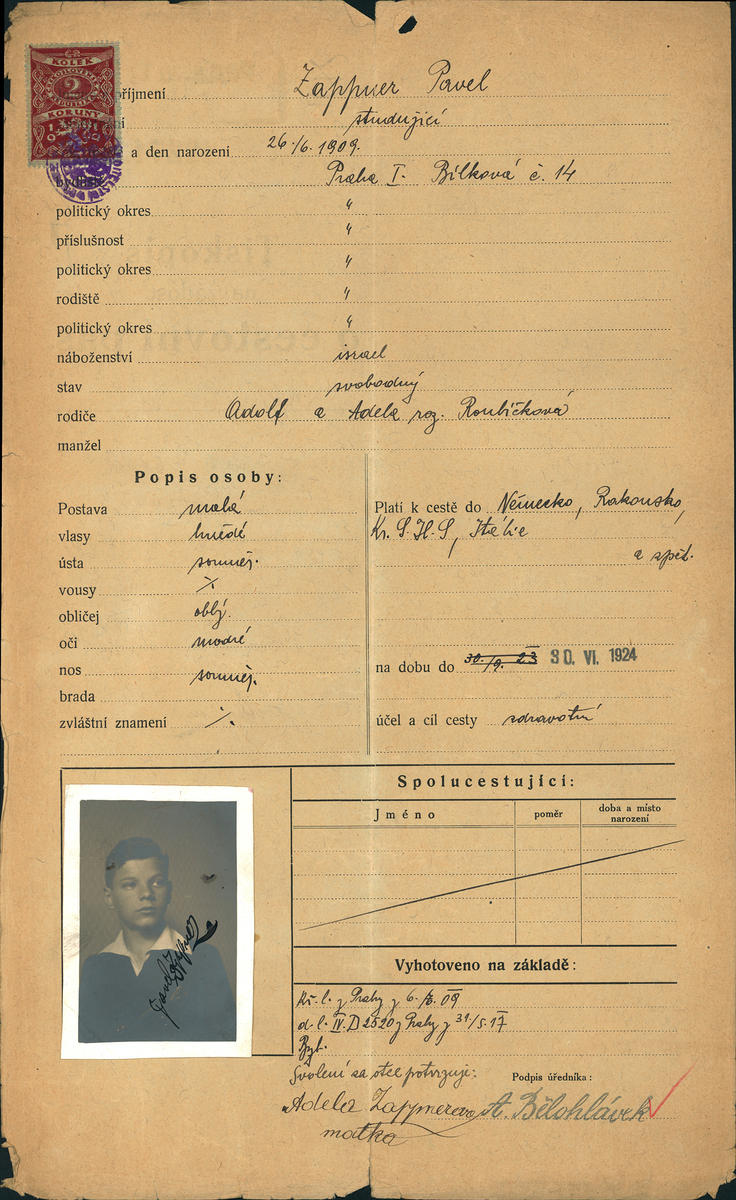 KOLEK
2
KORUNY
příjmení Zappner Pavel
studující
a den narození 26./6. 1909.
Praha I. Bílková č. 14
politický okres "
příslušnost "
politický okres "
rodiště "
politický okres "
náboženství israel
stav svobodný
rodiče Adolf a Adela roz. Roubíčková
manžel
Popis osoby:
Postava malá
vlasy hnědé
ústa souměr.
vousy ·/.
obličej oblý.
oči modré
nos souměr.
brada
zvláštní znamení ·/.
Platí k cestě do Německo, Rakousko,
Kr. S.H.S, Itálie
a zpět.
na dobu do 30./9. 23 30. VI. 1924
účel a cíl cesty zdravotní
Spolucestující:
Jméno poměr doba a místo narození
Pavel Zappner
Vyhotoveno na základě:
Kř. l. z Prahy z 6./8. 09
d. l. IV. D 2520 z Prahy z 31/5. 17
Byt.
Svolení za otce potvrzuje:
Podpis úředníka:
Adela Zappnerova A. Bělohlávek
matka